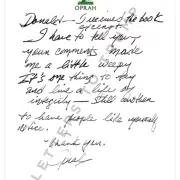 OPRAH
Donald — I received the book
excerpt
I have to tell you
your comments made
me a little weepy
It's one thing to try
and live a life of
integrity — still another
to have people like yourself
notice.
- Thank you.